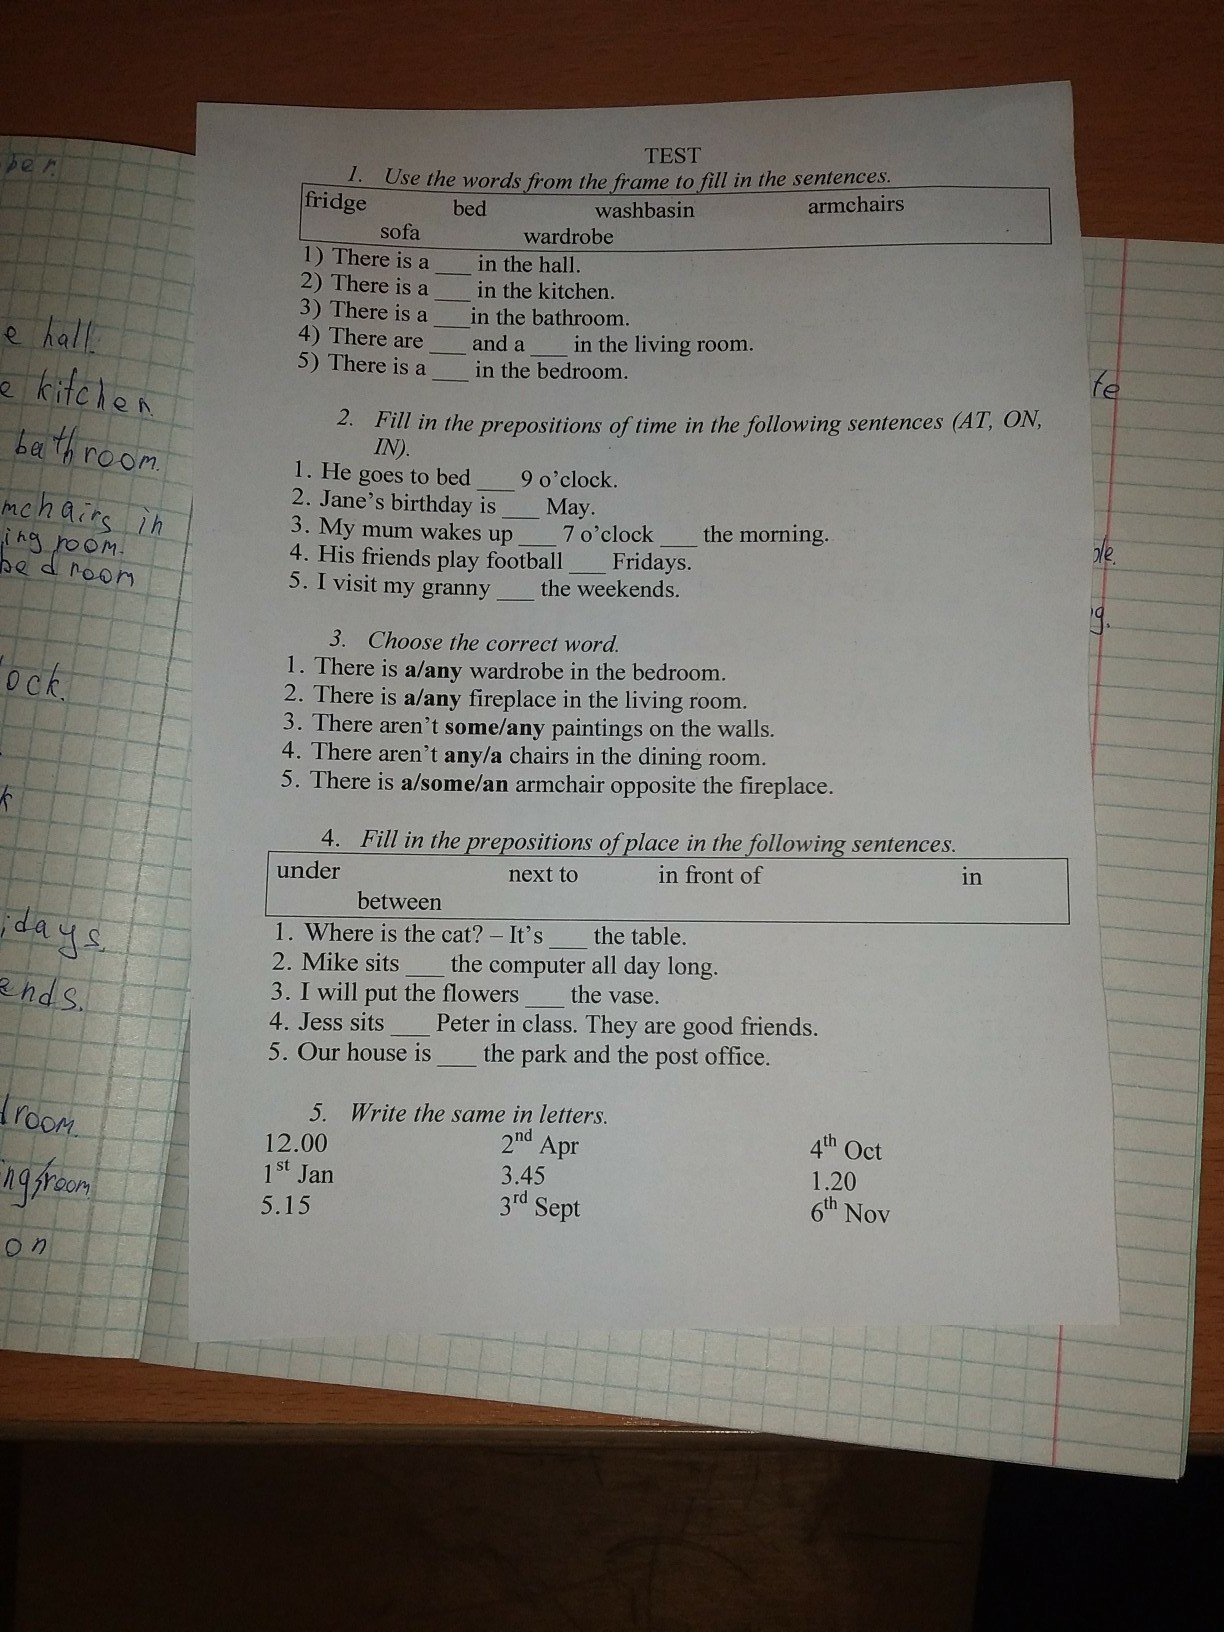 TEST
1. Use the words from the frame to fill in the sentences.
fridge bed washbasin armchairs
sofa wardrobe
1) There is a ___ in the hall.
2) There is a ___ in the kitchen.
3) There is a ___ in the bathroom.
4) There are ___ and a ___ in the living room.
5) There is a ___ in the bedroom.
2. Fill in the prepositions of time in the following sentences (AT, ON,
IN).
1. He goes to bed ___ 9 o’clock.
2. Jane’s birthday is ___ May.
3. My mum wakes up ___ 7 o’clock ___ the morning.
4. His friends play football ___ Fridays.
5. I visit my granny ___ the weekends.
3. Choose the correct word.
1. There is a/any wardrobe in the bedroom.
2. There is a/any fireplace in the living room.
3. There aren’t some/any paintings on the walls.
4. There aren’t any/a chairs in the dining room.
5. There is a/some/an armchair opposite the fireplace.
4. Fill in the prepositions of place in the following sentences.
under next to in front of in
between
1. Where is the cat? – It’s ___ the table.
2. Mike sits ___ the computer all day long.
3. I will put the flowers ___ the vase.
4. Jess sits ___ Peter in class. They are good friends.
5. Our house is ___ the park and the post office.
5. Write the same in letters.
12.00 2nd Apr 4th Oct
1st Jan 3.45 1.20
5.15 3rd Sept 6th Nov
e hall.
e kitchen
bathroom.
mchairs in
ing room.
bedroom
ock.
idays
ends.
droom.
ing room
on